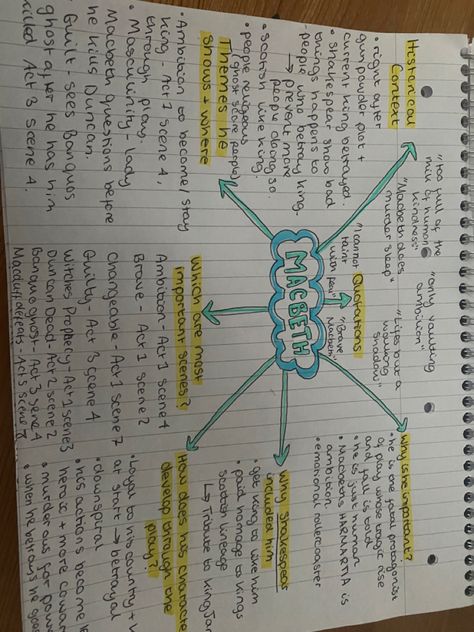 MACBETH
Historical
Context
• right after
gun powder plot +
current king betrayed
• shakespear show bad
things happens to
people who betray king.
↳ prevent more
people doing so.
• scottish like king.
• people religous
(ghost scare people)
Themes he
shows + where
• Ambition to become/stay
King - Act 1 scene 4,
through play.
• Masculinity - lady
Macbeth questions before
he kills Duncan.
• Guilt - sees Banquos
ghost after he has him
killed Act 3 scene 4.
Quotations
"too full of the
milk of human
kindness"
"Macbeth does
murder sleep"
"I cannot
taint
with fear"
"only vaulting
ambition"
"Lifes but a
walking
shadow"
"Brave
Macbeth"
Which are most
important scenes?
Ambition - Act 1 scene 4
Brave - Act 1 scene 2
Changeable - Act 1 scene 7
Guilty - Act 3 scene 4
Witches Prophecy - Act 1 scene 3
Duncan Dead - Act 2 scene 2
Banquo ghost - Act 3 scene 4
Macduff defeats - Act 5 scene
Why is he important?
• he is the focal protagonist
of play whos tragic rise
and fall is told
• he is just human
• Macbeths HARMARTIA is
ambition
• emotional rollercoaster
Why Shakespear
included him
• get King to like him
• paid homage to Kings
Scottish lineage
↳ Tribute to King Jam
How does his character
develop through the
play?
• Loyal to his country +
at start → betrayal
• downspiral
• has actions become le
heroic + more cowar
• murderous for power
• when he betrays he goes